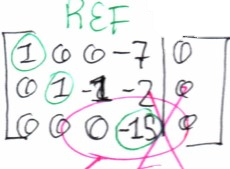 REF
1 0 0 -7 0
0 1 -1 -2 0
0 0 0 -15 0